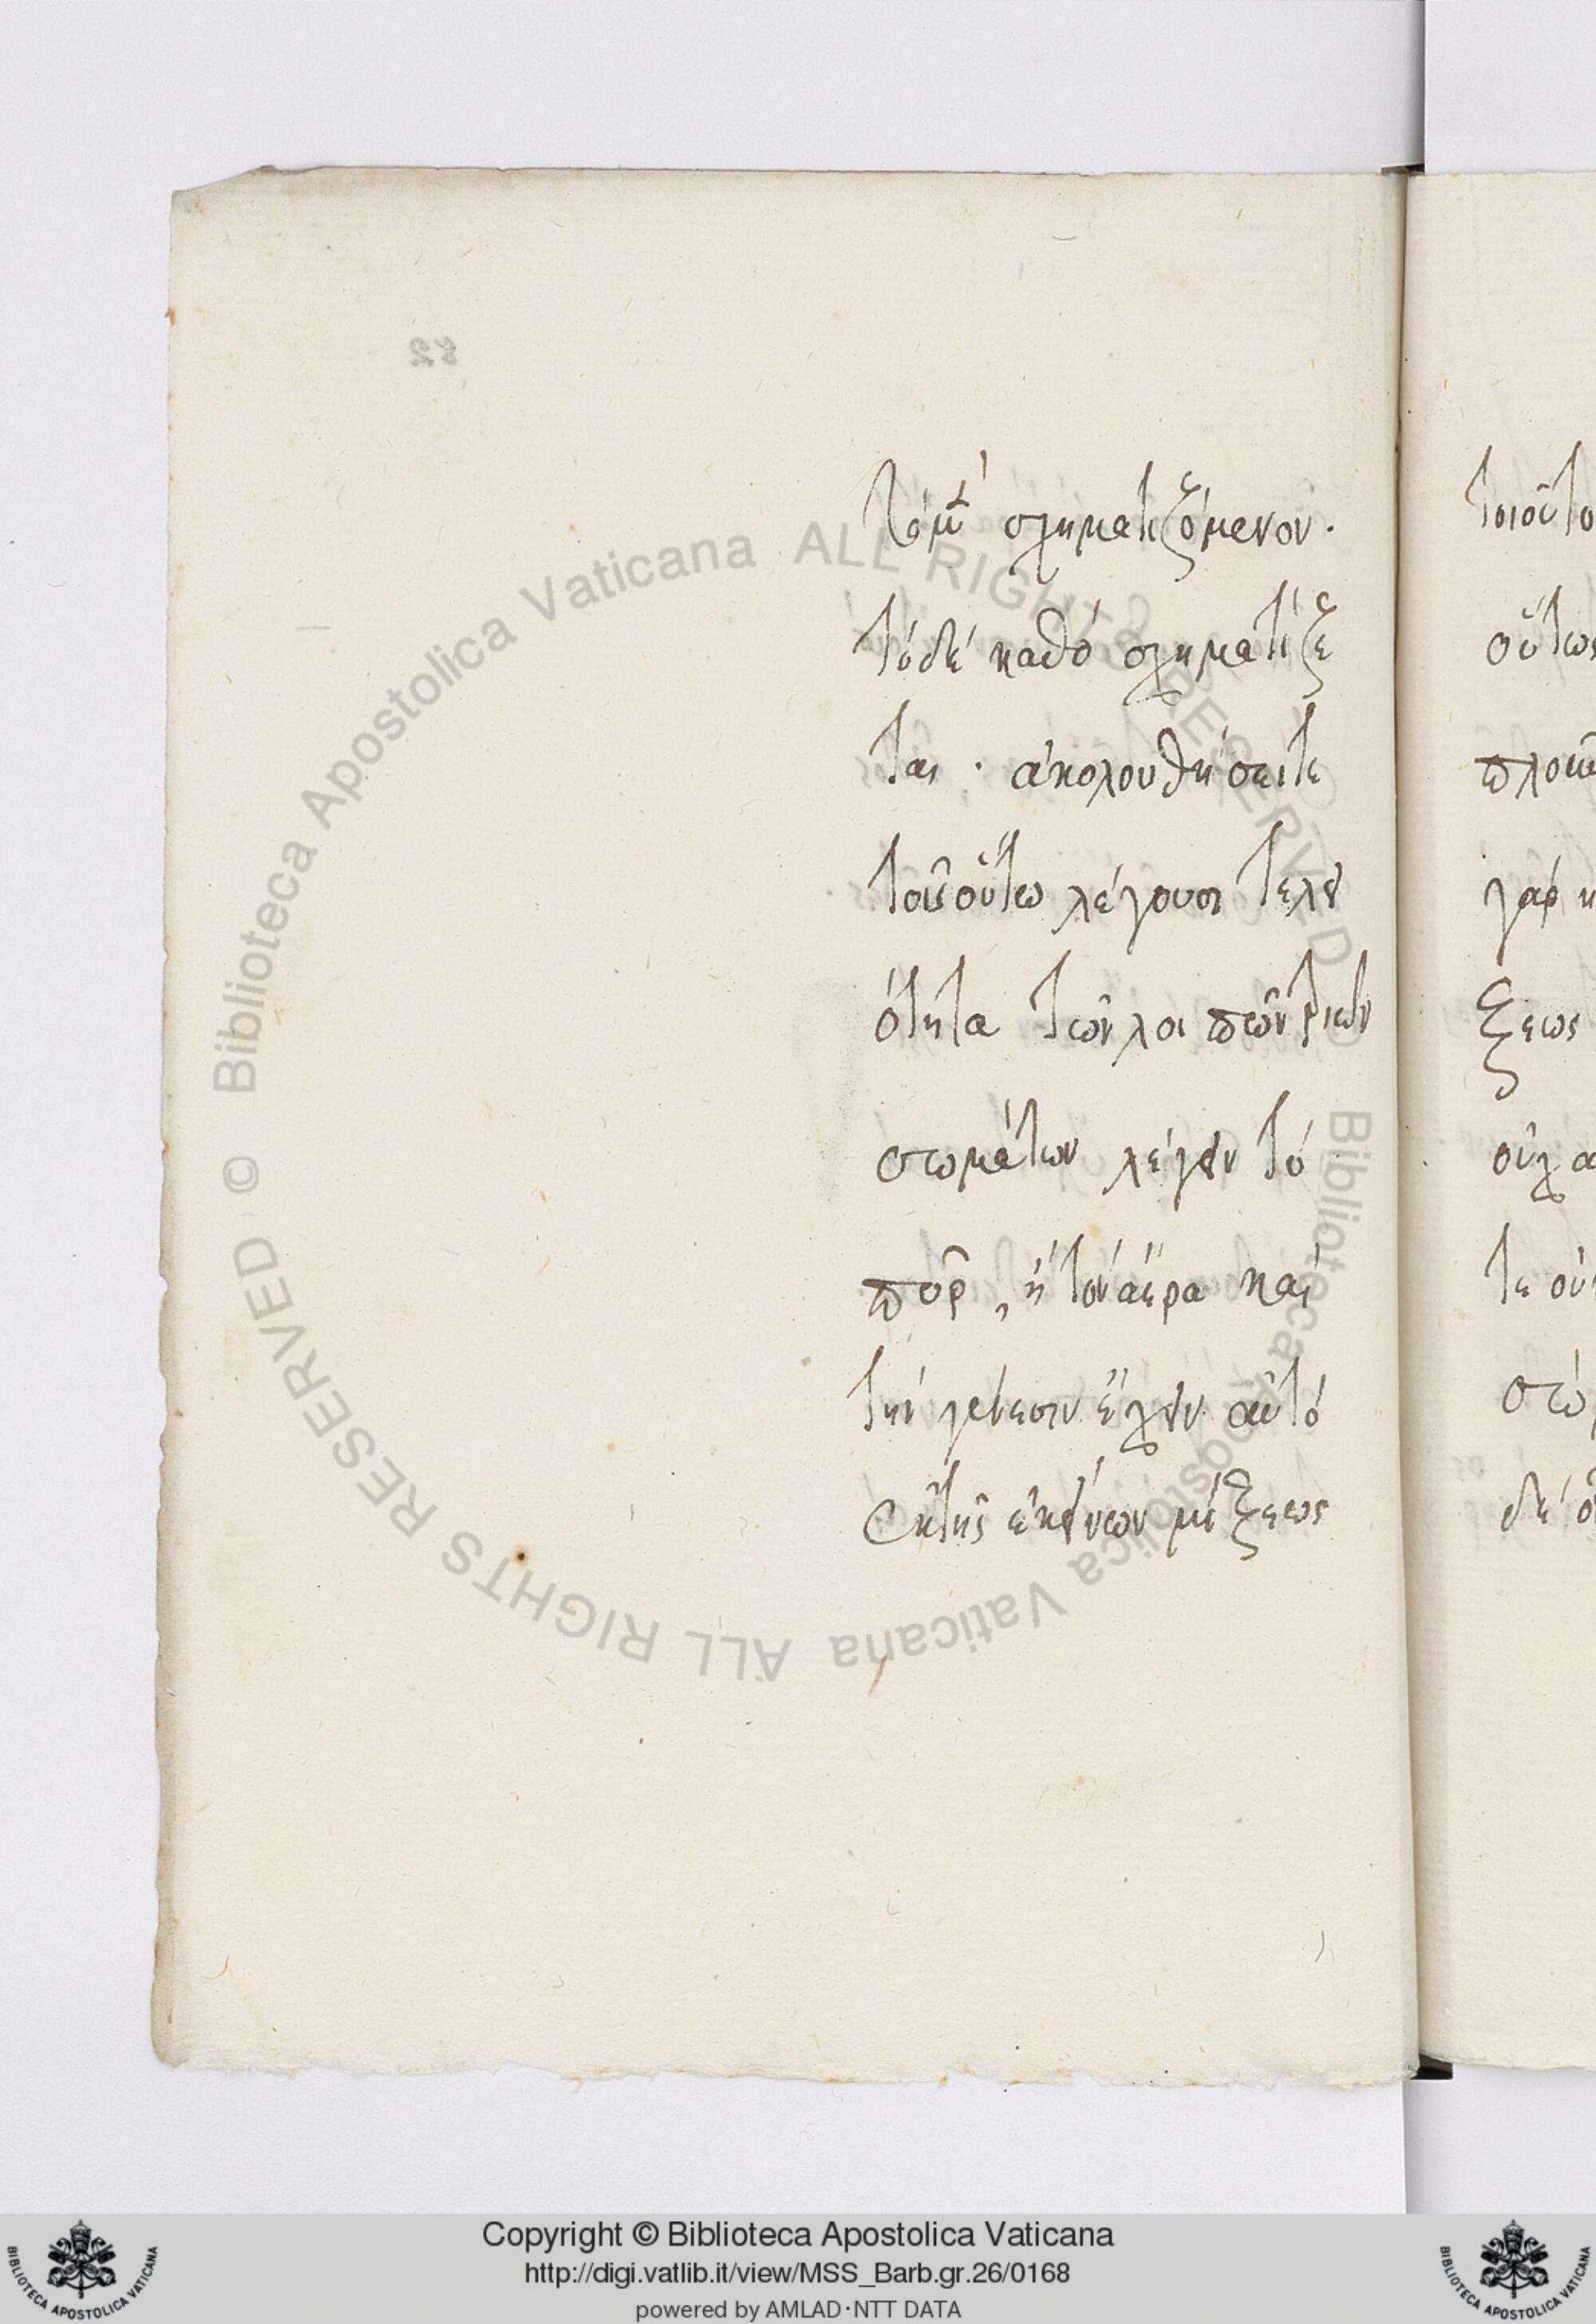 82
τὸ μὲν σχηματιζόμενον.
τὸ δὲ καθὸ σχηματίζε
ται · ἀκολουθήσει τε
τοῖς οὕτω λέγουσι τελει
ότητα τῶν λοιπῶν τριῶν
σωμάτων λέγειν τὸ
πῦρ, ἢ τὸν ἀέρα καὶ
τὴν γένεσιν ἔχειν αὐτὸ
ἐκ τῆς ἐκείνων μίξεως
τοιοῦτο
οὕτως
πλοκῆ
γὰρ κ
ξεως
οὐχ α
τε οὐ
στώ
δὲ ὁ
Copyright © Biblioteca Apostolica Vaticana
http://digi.vatlib.it/view/MSS_Barb.gr.26/0168
powered by AMLAD·NTT DATA
© Biblioteca Apostolica Vaticana ALL RIGHTS RESERVED
© Biblioteca Apostolica Vaticana ALL RIGHTS RESERVED
BIBLIOTECA APOSTOLICA VATICANA
BIBLIOTECA APOSTOLICA VATICANA